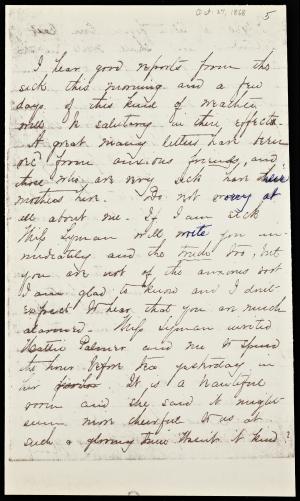 Oct. 27, 1868
5
I hear good reports from the
sick this morning and a few
days of this kind of weather
will be salutary in there effects.
A great many letters have been
from anxious friends, and
those who are very sick have their
mothers here. Do not worry at
all about me. If I am sick
Miss Lyman will write you im-
mediately and the truth too, but
you are not of the anxious sort
I am glad to know and I don't
expect to hear that you are much
alarmed. Miss Lyman invited
Hattie Palmer and me to spend
the hour before tea yesterday in
her parlor. It is a beautiful
room and she said it might
seem more cheerful to us at
such a gloomy time. Wasn't it kind?